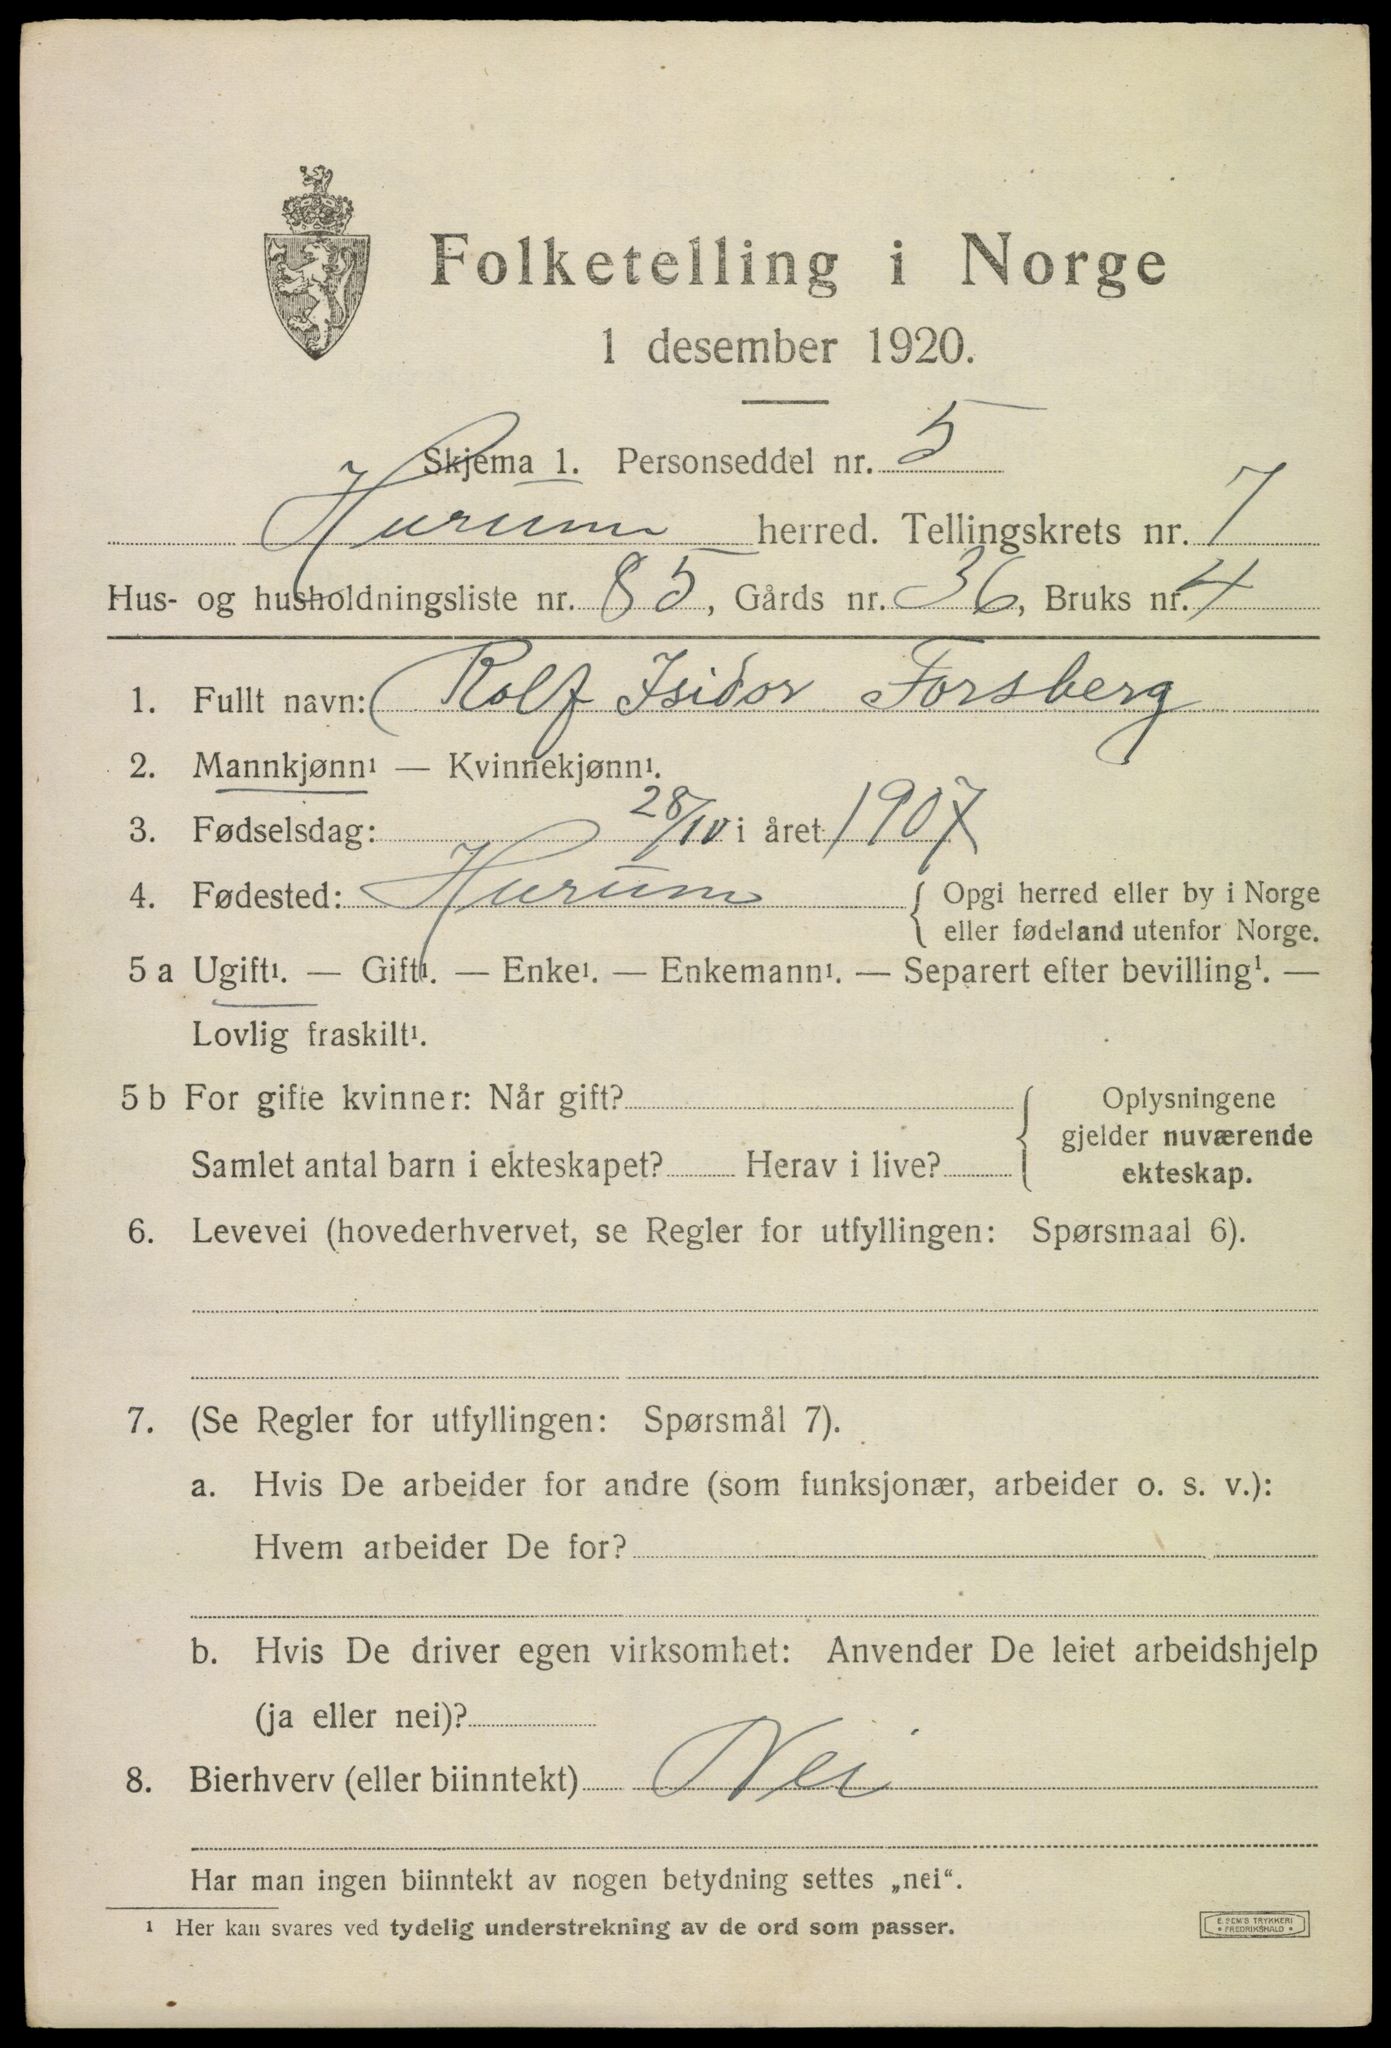 Folketelling i Norge
1 desember 1920.
Skjema 1. Personseddel nr. 5
Hurum herred. Tellingskrets nr. 7
Hus- og husholdningsliste nr. 85, Gårds nr. 36, Bruks nr. 4
1. Fullt navn: Rolf Isidor Forsberg
2. Mannkjønn¹ — Kvinnekjønn¹.
3. Fødselsdag: 28/10 i året 1907
4. Fødested: Hurum { Opgi herred eller by i Norge
eller fødeland utenfor Norge.
5 a Ugift¹. — Gift¹. — Enke¹. — Enkemann¹. — Separert efter bevilling¹. —
Lovlig fraskilt¹.
5 b For gifte kvinner: Når gift? { Oplysningene
gjelder nuværende
Samlet antal barn i ekteskapet? Herav i live? ekteskap.
6. Levevei (hovederhvervet, se Regler for utfyllingen: Spørsmaal 6).
7. (Se Regler for utfyllingen: Spørsmål 7).
a. Hvis De arbeider for andre (som funksjonær, arbeider o. s. v.):
Hvem arbeider De for?
b. Hvis De driver egen virksomhet: Anvender De leiet arbeidshjelp
(ja eller nei)?
8. Bierhverv (eller biinntekt) Nei
Har man ingen biinntekt av nogen betydning settes „nei“.
¹ Her kan svares ved tydelig understrekning av de ord som passer.
E. SEM'S TRYKKERI
• FREDRIKSHALD •